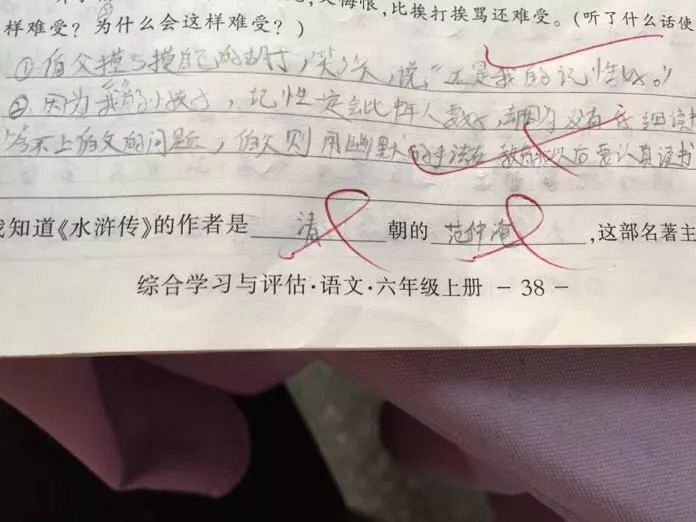 又悔恨,比挨打挨骂还难受。(听了什么话使
样难受?为什么会这样难受?)
①伯父摸了摸胡子,笑了笑,说,"还是我的记性好。"
②因为我的小孩子,记性一定会比中年人要好,却因为没有 细读书
答不上伯父的问题,伯父则用幽默的手法在教育我以后要认真读书
我知道《水浒传》的作者是 清 朝的 范仲淹 ,这部名著主
综合学习与评估·语文·六年级上册 - 38 -